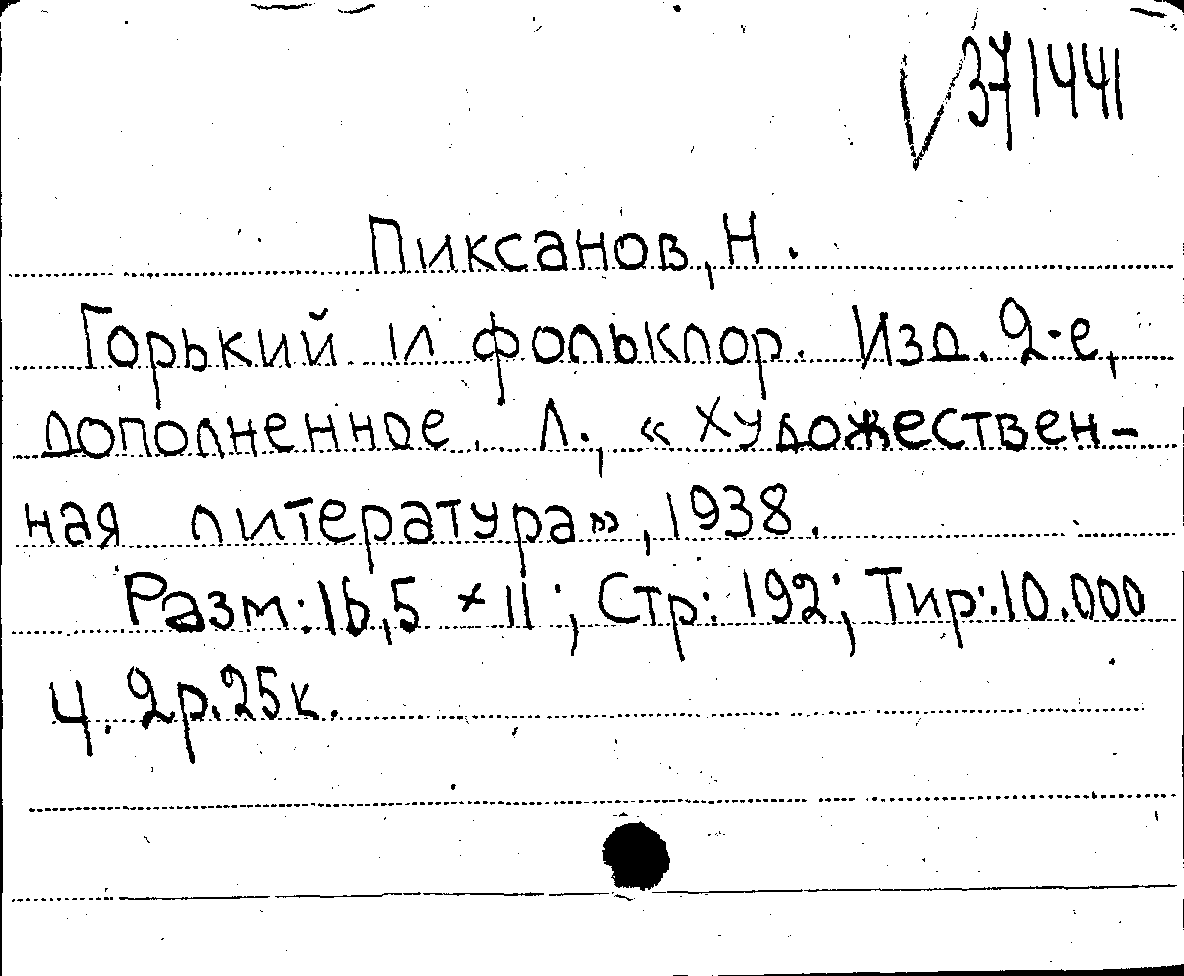 √371441
Пиксанов, Н.
Горький и фольклор. Изд. 2-е,
дополненное. Л., «Художествен-
ная литература», 1938.
Разм: 16,5 × 11; Стр: 192; Тир: 10.000
Ц. 2р. 25к.